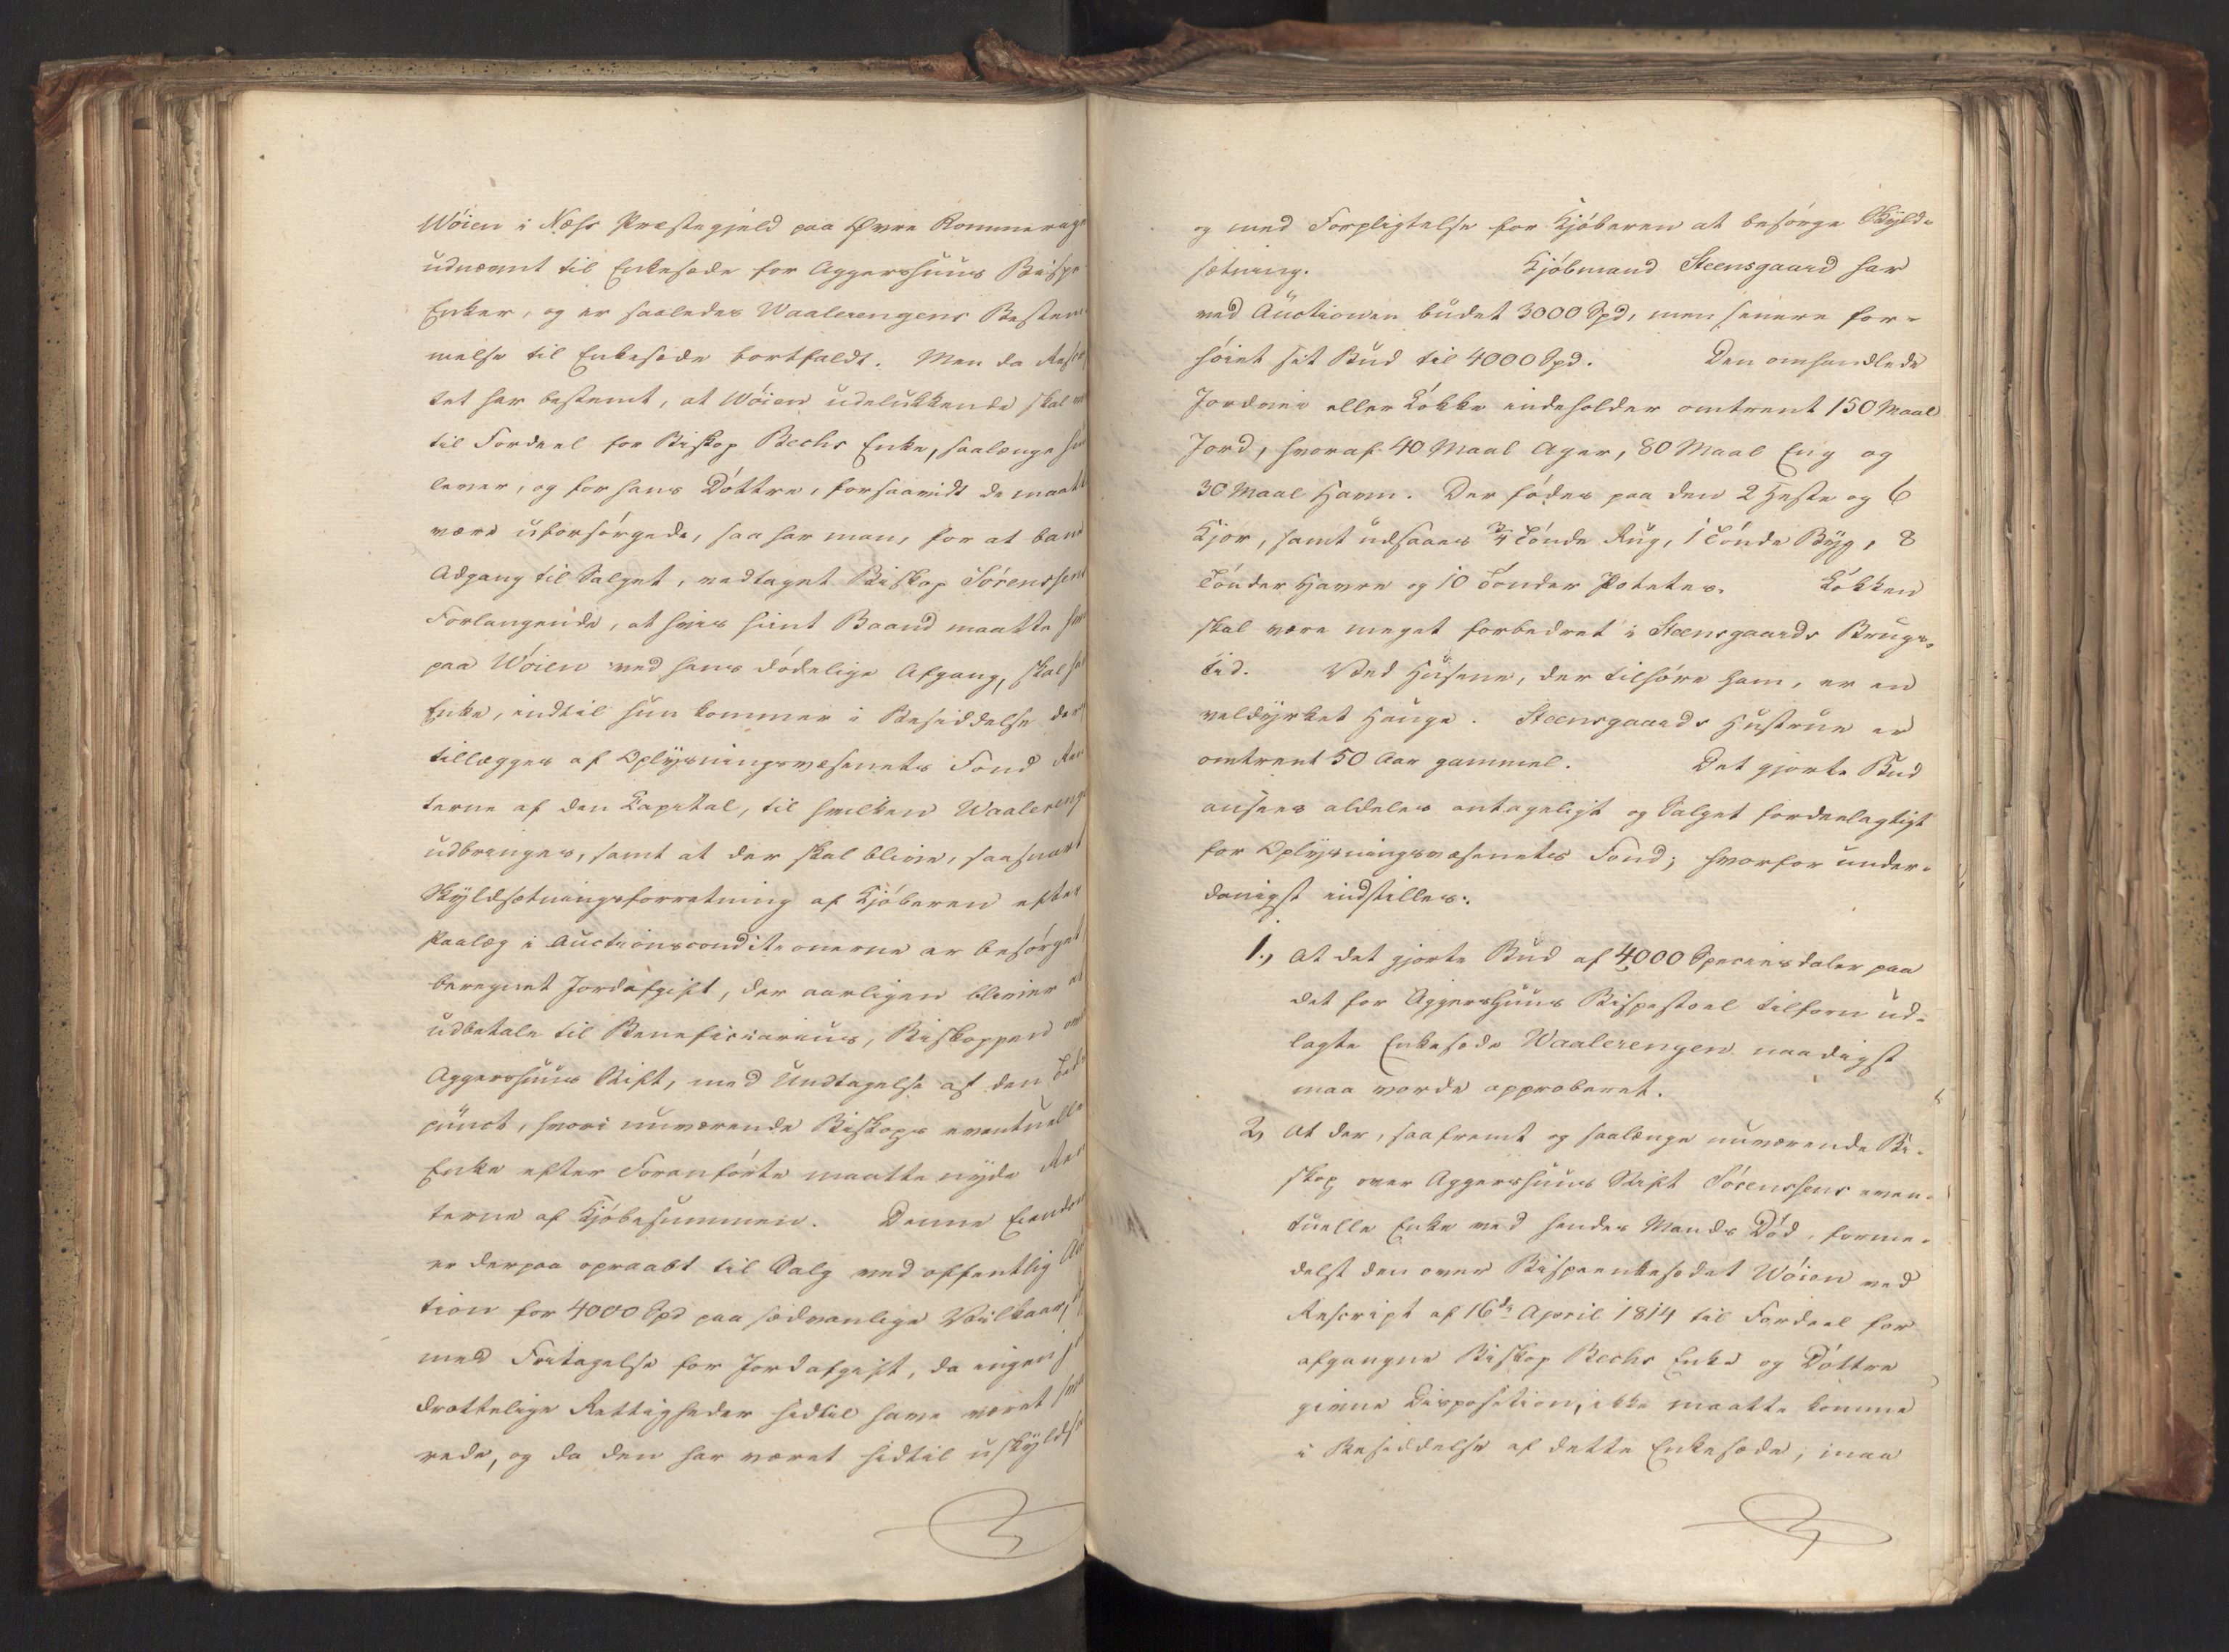 Wøien i Næss Præstegjeld paa Øvre Rommerige
udnævnt til Enkesæde for Aggershuus Bispe
Enker, og er saaledes Waalerengens Bestem-
melse til Enkesæde bortfaldt. Men da Rescr
tet har bestemt, at Wøien udelukkende skal
til Fordeel for Biskop Bechs Enke, saalænge hun
lever, og for hans Døttre, forsaavidt de maatte
være uforsørgede, saa har man, for at bane
Adgang til Salget, vedtaget Biskop Sørenssens
Forlangende, at hvis hiint Baand maatte
paa Wøien ved hans dødelige Afgang, skal
Enke, indtil hun kommer i Besiddelse der
tillægges af Oplysningsvæsenets Fond Ren
terne af den Kapital, til hvilken Waalereng
udbringes, samt at der skal blive, saasnart
Skyldsætningsforretning af Kjøberen efter
Paalæg i Auctionsconditionerne er besørget
beregnet Jordafgift, der aarligen bliver at
udbetale til Beneficiarius, Biskoppen over
Aggershuus Stift, med Undtagelse af den Tids
punct, hvori nuværende Biskops eventuelle
Enke efter Foranførte maatte nyde Ren
terne af Kjøbesummen. Denne Eiendom
er derpaa opraabt til Salg ved offentlig Auc
tion for 4000 Spd paa sædvanlige Vilkaar,
med Fritagelse for Jordafgift, da ingen j
drottelige Rettigheder hidtil have været
rede, og da den har været hidtil uskyldsa
og med Forpligtelse for Kjøberen at besørge Skyld-
sætning. Kjøbmand Steensgaard har
ved Auctionen budet 3000 Spd, men senere for-
høiet sit Bud til 4000 Spd. Den omhandlede
Jordvei eller Løkke indeholder omtrent 150 Maal
Jord, hvoraf 40 Maal Ager, 80 Maal Eng og
30 Maal Havn. Der fødes paa den 2 Heste og 6
Kjør, samt udsaaes 3/4 Tønde Rug, 1 Tønde Byg, 8
Tønder Havre og 10 Tønder Potetes. Løkken
skal være meget forbedret i Steensgaards Brugs-
tid. Ved Husene, der tilhøre ham, er en
veldyrket Hauge. Steensgaards Hustrue er
omtrent 50 Aar gammel. Det gjorte Bud
ansees aldeles antageligt og Salget fordeelagtigt
for Oplysningsvæsenets Fond; hvorfor under-
danigst indstilles:
1., At det gjorte Bud af 4000 Speciesdaler paa
det for Aggershuus Bispestoel tilforn ud-
lagte Enkesæde Waalerengen naadigst
maa vorde approberet.
2, At der, saafremt og saalænge nuværende Bi-
skop over Aggershuus Stift Sørenssens even-
tuelle Enke ved hendes Mands Død, forme-
delst den over Bispeenkesædet Wøien ved
Rescript af 16de April 1814 til Fordeel for
afgangne Biskop Bechs Enke og Døttre
givne Disposition, ikke maatte komme
i Besiddelse af dette Enkesæde, maa